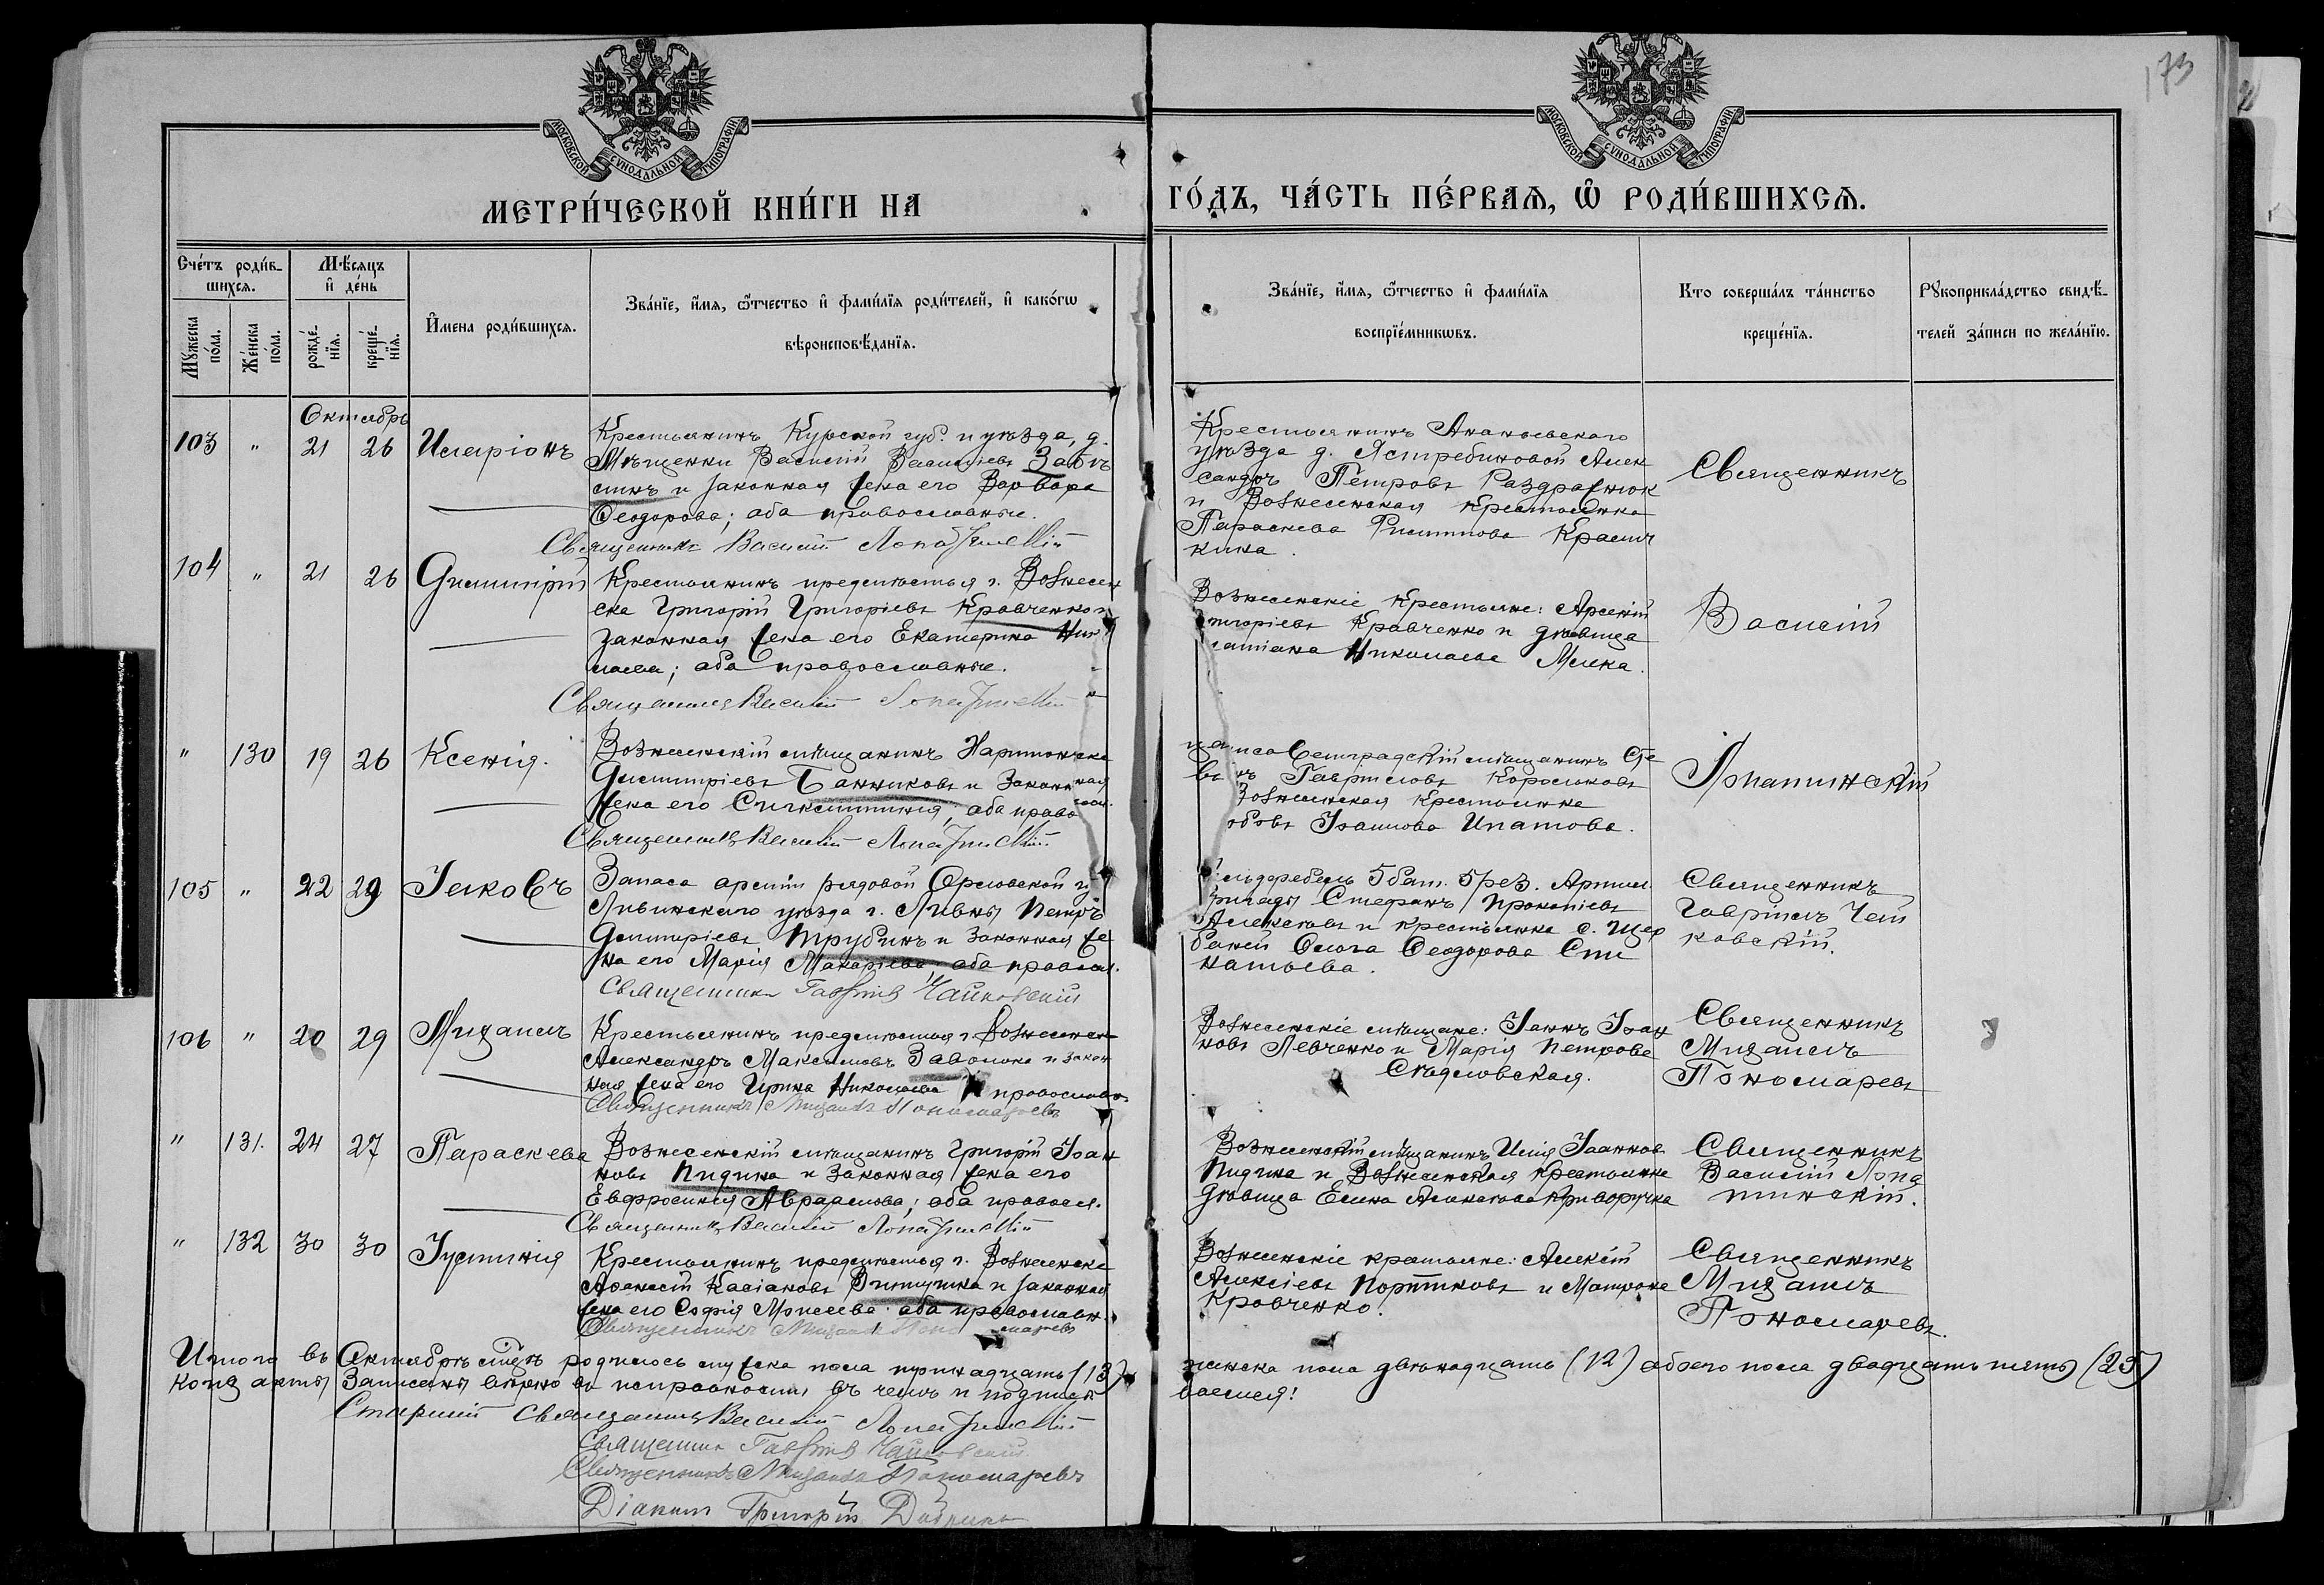 173
МОСКОВСКОЙ СѴНОДАЛЬНОЙ ТИПОГРАФІИ
МОСКОВСКОЙ СѴНОДАЛЬНОЙ ТИПОГРАФІИ
МЕТРИ́ЧЕСКОЙ КНИ́ГИ НА
ГО́ДЪ, ЧА́СТЬ ПЕ́РВАѦ, Ѽ РОДИ́ВШИХСѦ.
Сче́тъ роди́в-
шихсѧ.
Мꙋ́жеска
по́ла.
Же́нска
по́ла.
Мѣ́сѧцъ
и҆ де́нь
рожде́-
нїѧ.
креще́-
нїѧ.
И҆мена роди́вшихсѧ.
Зва́нїе, и҆́мѧ, ѻ҆́тчество и҆ фами́лїѧ роди́телей, и҆ како́гѡ
вѣроисповѣ́данїѧ.
Зва́нїе, и҆́мѧ, ѻ҆́тчество и҆ фами́лїѧ
воспрїе́мникѡвъ.
Кто соверша́лъ та́инство
креще́нїѧ.
Рꙋкоприкла́дство свидѣ́-
телей за́писи по жела́нїю.
Октябрь
103 " 21 26 Иларіонъ
Крестьянинъ Курской губ. и уѣзда, д.
Мѣщенки Василій Васильевъ
и законная жена его Варвара
Ѳеодорова; оба православные.
Священникъ Василій Лопатинскій
Крестьянинъ Ананьевскаго
уѣзда д. Ястребиновой Алек
сандръ Петровъ Раздражнюк
и Вознесенская крестьянка
Параскева Филиппова
кина.
Священникъ
104 " 21 26 Димитрій
Крестьянинъ предмѣстья г. Вознесен
ска Григорій Григоріевъ Кравченко и
законная жена его Екатерина Ник
лаева; оба православные.
Священникъ Василій Лопатинскій
Вознесенскіе крестьяне: Арсеній
Кравченко и дѣвица
Николаева
Василій
" 130 19 26 Ксенія.
Вознесенскій мѣщанинъ
Димитріевъ Банниковъ и законная
жена его оба право
Священникъ Василій Лопатинскій
мѣщанинъ
Гавриловъ Корольковъ
Вознесенская крестьянка
Іоаннова Ипатова.
Лопатинскій
105 " 22 29 Іаковъ
Запаса арміи рядовой Орловской г
Ливинскаго уѣзда г. Ливны Петръ
Димитріевъ Трубинъ и законная же
на его Марія Макаріева, оба правосл.
Священникъ Гавріилъ Чайковскій
5 бат. 5 рез. Артил.
бригады Стефанъ Прокопіевъ
и крестьянка с. Щер
баней Ольга Ѳеодорова
Священникъ
Гавріилъ Чай
ковскій.
106 " 20 29 Михаилъ
Крестьянинъ предмѣстья г. Вознесенска
Александръ Максимовъ Заволока и закон
ная жена его Ирина Николаева православн
Священникъ Михаилъ Пономаревъ
Вознесенскіе мѣщане: Іаннъ Іоан
новъ Левченко и Марія Петрова
Священникъ
Михаилъ
Пономаревъ
" 131. 24 27 Параскева
Вознесенскій мѣщанинъ Григорій Іоан
новъ Пидина и законная жена его
Евфросинія Авраамова; оба правосл.
Священникъ Василій Лопатинскій
Вознесенскій мѣщанинъ Илія Іоаннов
Пидина и Вознесенская крестьянка
дѣвица Елена Криворучка
Священникъ
Василій Лопа
тинскій.
" 132 30 30 Іустинія
Крестьянинъ предмѣстья г. Вознесенска
Аѳанасій Касіановъ и законная
жена его Софія Моисеева оба православн.
Священникъ Михаилъ Пономаревъ
Вознесенскіе крестьяне: Алексій
Алексіевъ Портниковъ и Матрона
Кравченко.
Священникъ
Михаилъ
Пономаревъ.
Итого въ Октябрѣ мцѣ родилось мужеска пола тринадцать (13)
женска пола двѣнадцать (12) обоего пола двадцать пять (25)
записаны вѣрно въ исправности въ чемъ и подписы
ваемся!
Старшій Священникъ Василій Лопатинскій
Священникъ Гавріилъ Чайковскій
Священникъ Михаилъ Пономаревъ
Діаконъ Григорій